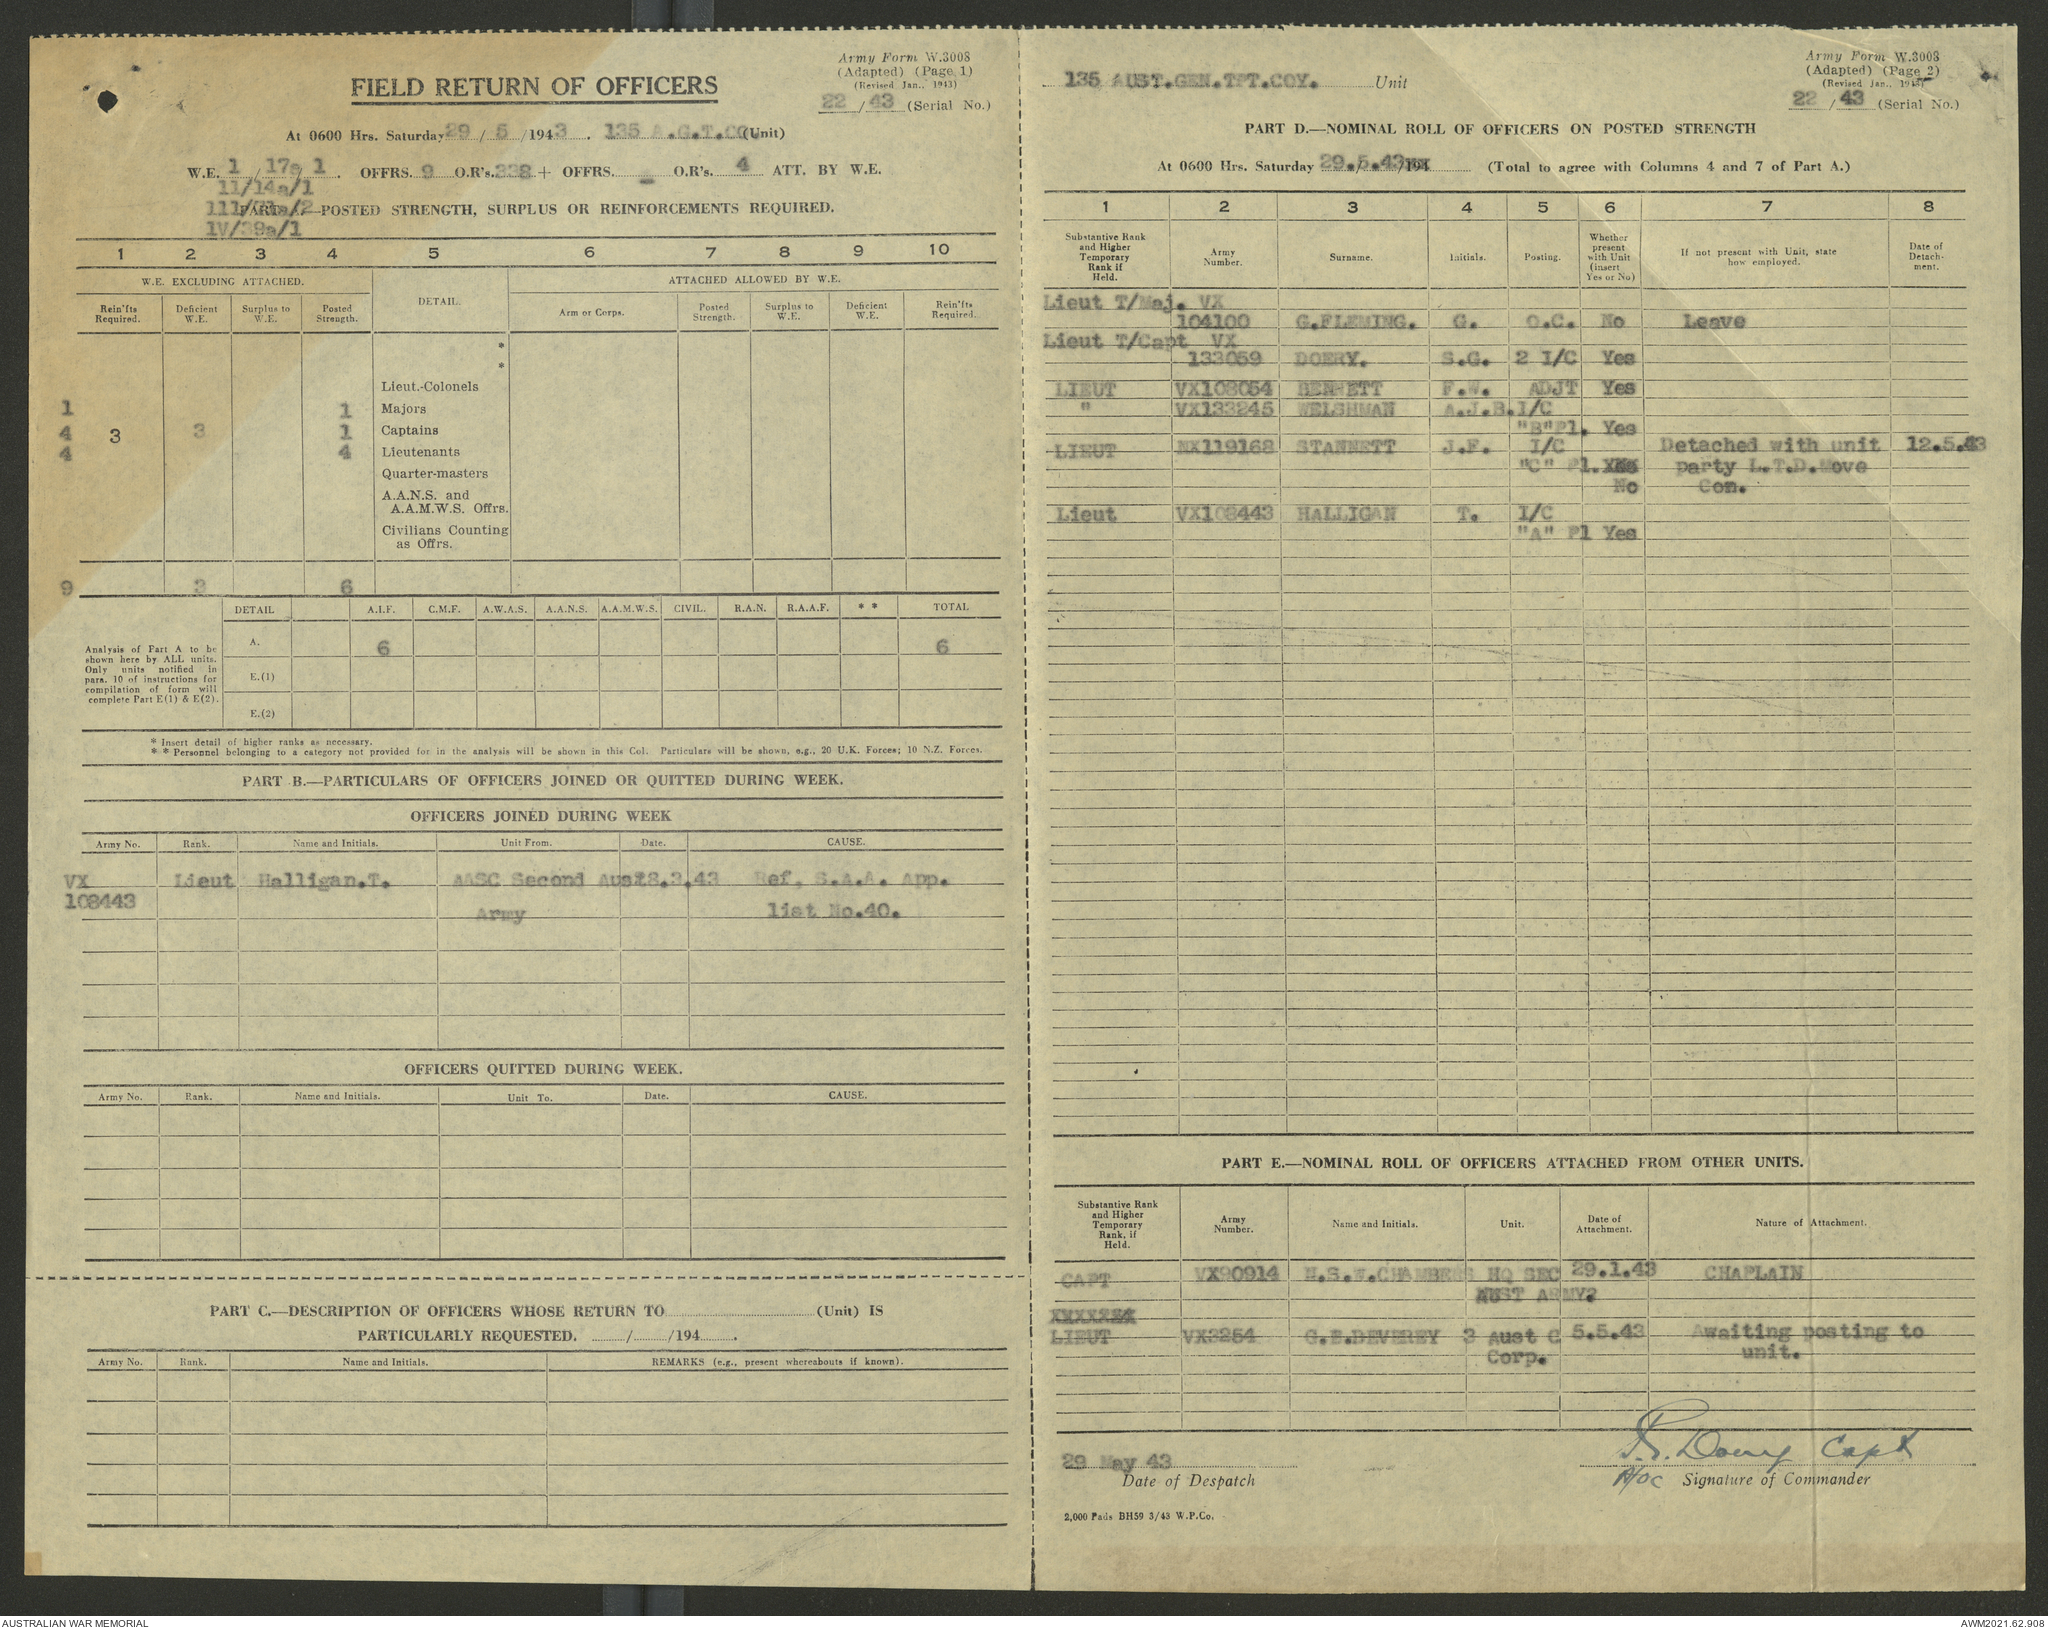 Army Form W.3008
(Adapted) (Page 1)
(Revised Jan., 1943)
22 / 43 (Serial No.)
FIELD RETURN OF OFFICERS
At 0600 Hrs. Saturday 29 / 5 /1943. 135 A.G.T.CO. (Unit)
W.E. 1 / 17a / 1 . OFFRS. 9 O.R's. 338 + OFFRS. - O.R's. 4 ATT. BY W.E.
11/14a/1
111/ /2 PART A.—POSTED STRENGTH, SURPLUS OR REINFORCEMENTS REQUIRED.
1V/39a/1
1 2 3 4 5 6 7 8 9 10
W.E. EXCLUDING ATTACHED. DETAIL. ATTACHED ALLOWED BY W.E.
Rein'fts Required. Deficient W.E. Surplus to W.E. Posted Strength. Arm or Corps. Posted Strength. Surplus to W.E. Deficient W.E. Rein'fts Required.
*
*
Lieut.-Colonels
1 1 Majors
4 3 3 1 Captains
4 4 Lieutenants
Quarter-masters
A.A.N.S. and
A.A.M.W.S. Offrs.
Civilians Counting
as Offrs.
9 3 6
DETAIL A.I.F. C.M.F. A.W.A.S. A.A.N.S. A.A.M.W.S. CIVIL. R.A.N. R.A.A.F. * * TOTAL
Analysis of Part A to be shown here by ALL units. Only units notified in para. 10 of instructions for compilation of form will complete Part E(1) & E(2).
A. 6 6
E.(1)
E.(2)
* Insert detail of higher ranks as necessary.
* * Personnel belonging to a category not provided for in the analysis will be shown in this Col. Particulars will be shown, e.g., 20 U.K. Forces; 10 N.Z. Forces.
PART B.—PARTICULARS OF OFFICERS JOINED OR QUITTED DURING WEEK.
OFFICERS JOINED DURING WEEK
Army No. Rank. Name and Initials. Unit From. Date. CAUSE.
VX Lieut Halligan.T. AASC Second Aust 28.3.43 Ref, S.A.A. App.
108443 Army list No.40.
OFFICERS QUITTED DURING WEEK.
Army No. Rank. Name and Initials. Unit To. Date. CAUSE.
PART C.—DESCRIPTION OF OFFICERS WHOSE RETURN TO (Unit) IS
PARTICULARLY REQUESTED. / /194 .
Army No. Rank. Name and Initials. REMARKS (e.g., present whereabouts if known).
Army Form W.3008
(Adapted) (Page 2)
(Revised Jan., 1943)
22 / 43 (Serial No.)
135 AUST.GEN.TPT.COY. Unit
PART D.—NOMINAL ROLL OF OFFICERS ON POSTED STRENGTH
At 0600 Hrs. Saturday 29.5.43 /194 (Total to agree with Columns 4 and 7 of Part A.)
1 2 3 4 5 6 7 8
Substantive Rank and Higher Temporary Rank if Held. Army Number. Surname. Initials. Posting. Whether present with Unit (insert Yes or No) If not present with Unit, state how employed. Date of Detach- ment.
Lieut T/Maj. VX
104100 G.FLEMING. G. O.C. No Leave
Lieut T/Capt VX
133059 DOERY. S.G. 2 I/C Yes
LIEUT VX108054 BENNETT F.W. ADJT Yes
" VX133245 WELSHMAN A.J.B. I/C
"B"Pl. Yes
LIEUT NX119168 STANNETT J.F. I/C Detached with unit 12.5.43
"C" Pl. party L.T.D.Move
No Com.
Lieut VX108443 HALLIGAN T. I/C
"A" Pl Yes
PART E.—NOMINAL ROLL OF OFFICERS ATTACHED FROM OTHER UNITS.
Substantive Rank and Higher Temporary Rank, if Held. Army Number. Name and Initials. Unit. Date of Attachment. Nature of Attachment.
CAPT VX90914 H.S.W.CHAMBERS HQ SEC 29.1.43 CHAPLAIN
AUST ARMY?
LIEUT VX3254 G.E.DEVEREY 3 Aust C 5.5.43 Awaiting posting to
Corp. unit.
29 May 43
Date of Despatch
S.G. Doery Capt
A/OC Signature of Commander
2,000 Pads BH59 3/43 W.P.Co.
AUSTRALIAN WAR MEMORIAL
AWM2021.62.908